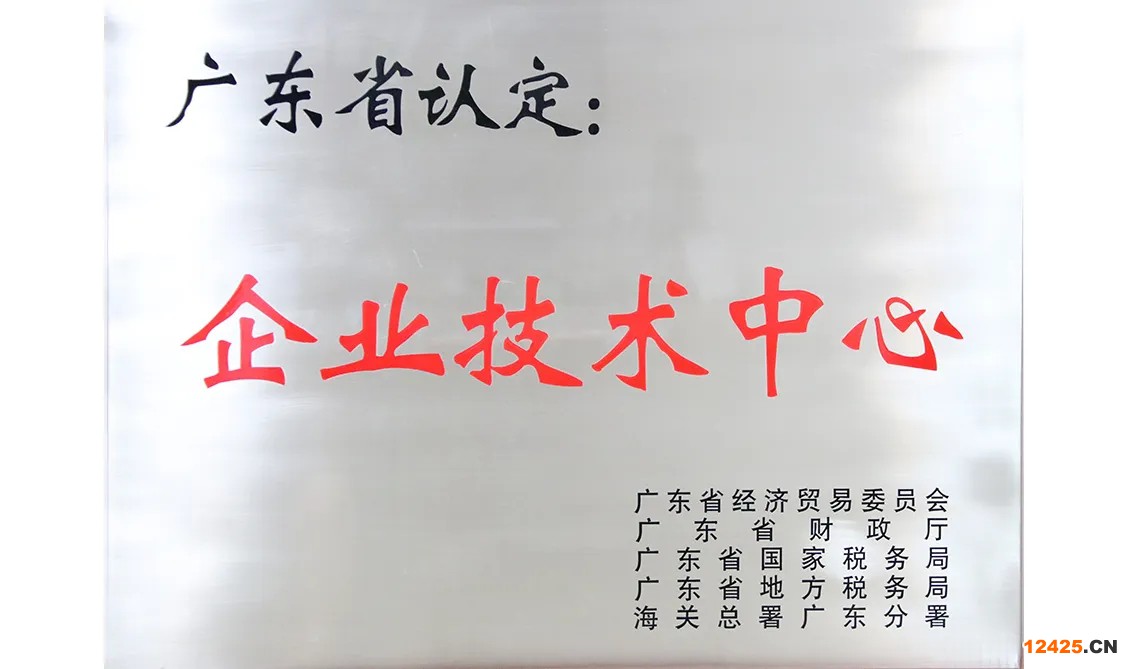 广东省认定：
企业技术中心
广东省经济贸易委员会
广东省财政厅
广东省国家税务局
广东省地方税务局
海关总署广东分署
12425.CN